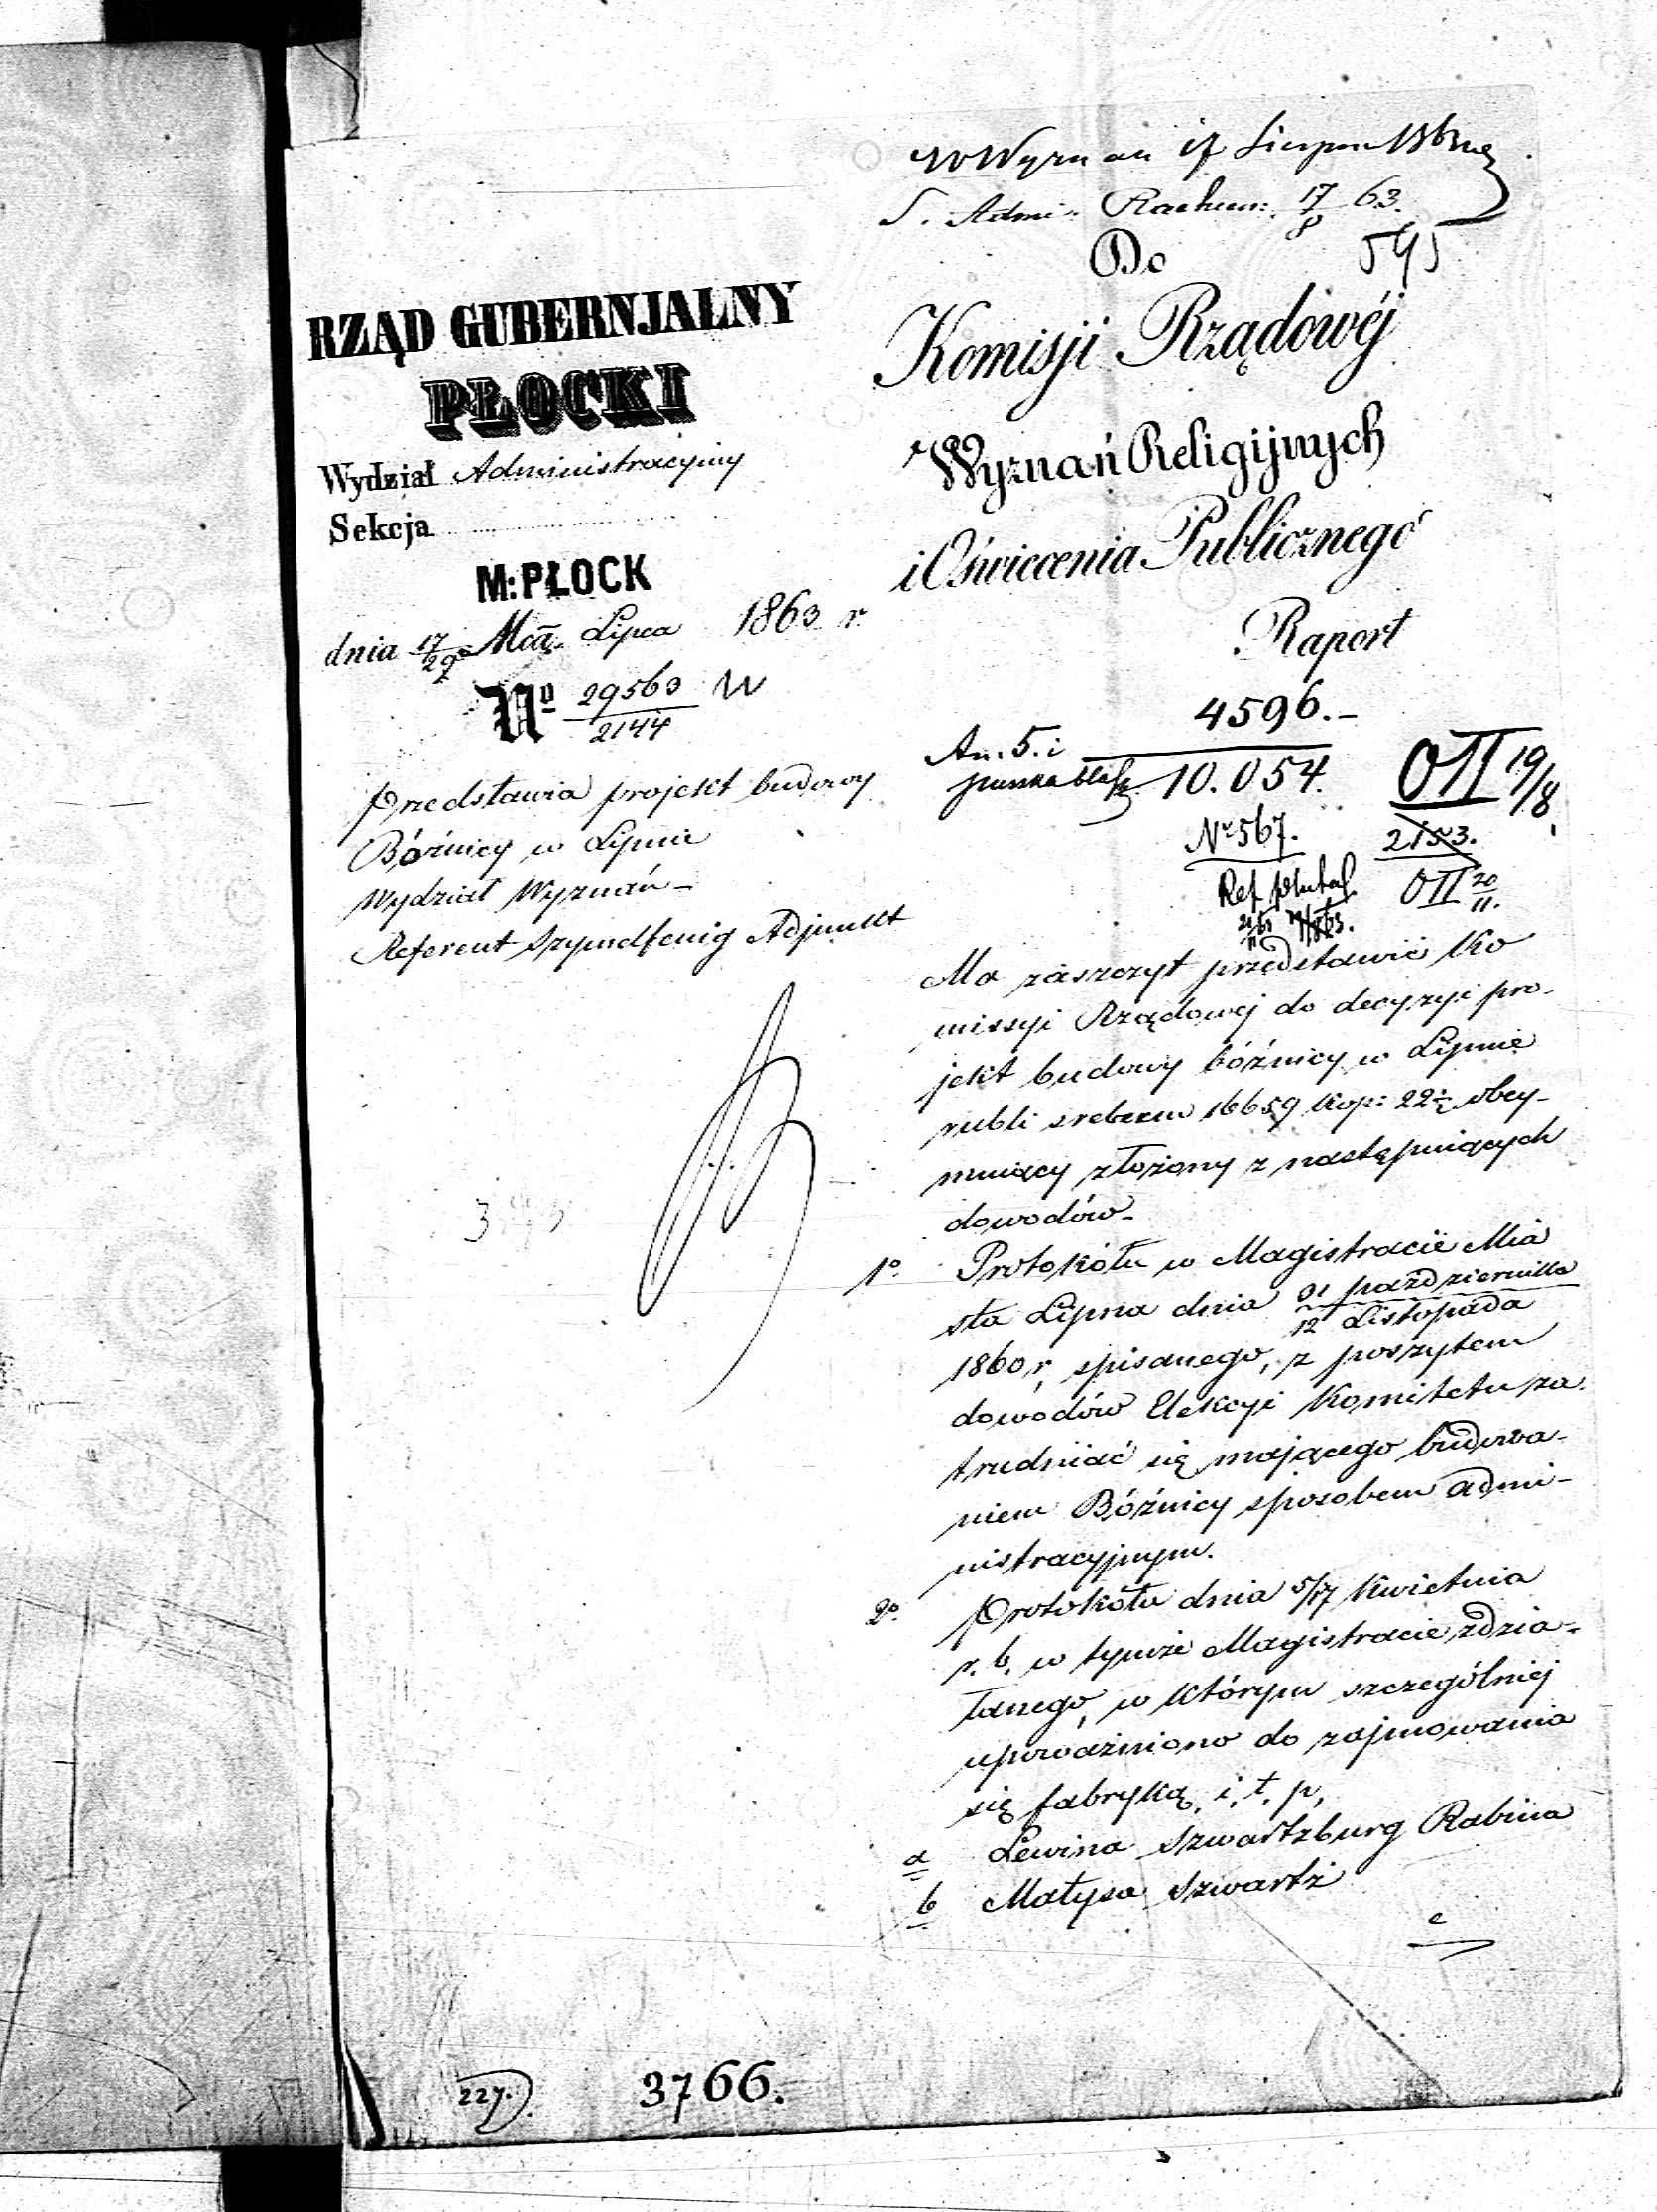 S. Admi: Rachun: 17/8 63.
595
RZĄD GUBERNJALNY
PŁOCKI
Wydział Administracyjny
Sekcja
M: PŁOCK
dnia 17/29 Mca Lipca 1863 r.
No 29563/2144 W
Przedstawia projekt budowy
Bóżnicy w Lipnie
Wydział Wyznań
Referent Szyndlfenig Adjunkt
Do
Komisji Rządowéj
Wyznań Religijnych
i Oświecenia Publicznego
Raport
4596.-
An. 5. i
10.054.
OII 19/8
Nr 567.
2153.
Ref
OII 20/11.
Ma zaszczyt przedstawić Ko
missyi Rządowej do decyzyi pro-
jekt budowy bóżnicy w Lipnie
rubli srebrem 16659 kop: 22½ obey-
muiący złożony z następuiących
dowodów-
1o. Protokółu w Magistracie Mia
sta Lipna dnia 31 października / 12 Listopada
1860 r. spisanego, z poszytem
dowodów Elekcyi Komitetu za-
trudniać się mającego budowa-
niem Bóźnicy sposobem admi-
nistracyjnym.
2o. Protokółu dnia 5/17 Kwietnia
r. b. w tymże Magistracie zdzia-
łanego, w którym szczególniej
upoważniono do zajmowania
się fabryką, i, t, p,
a Lewina Szwartzburg Rabina
b Matysa Szwartz
c
227.
3766.